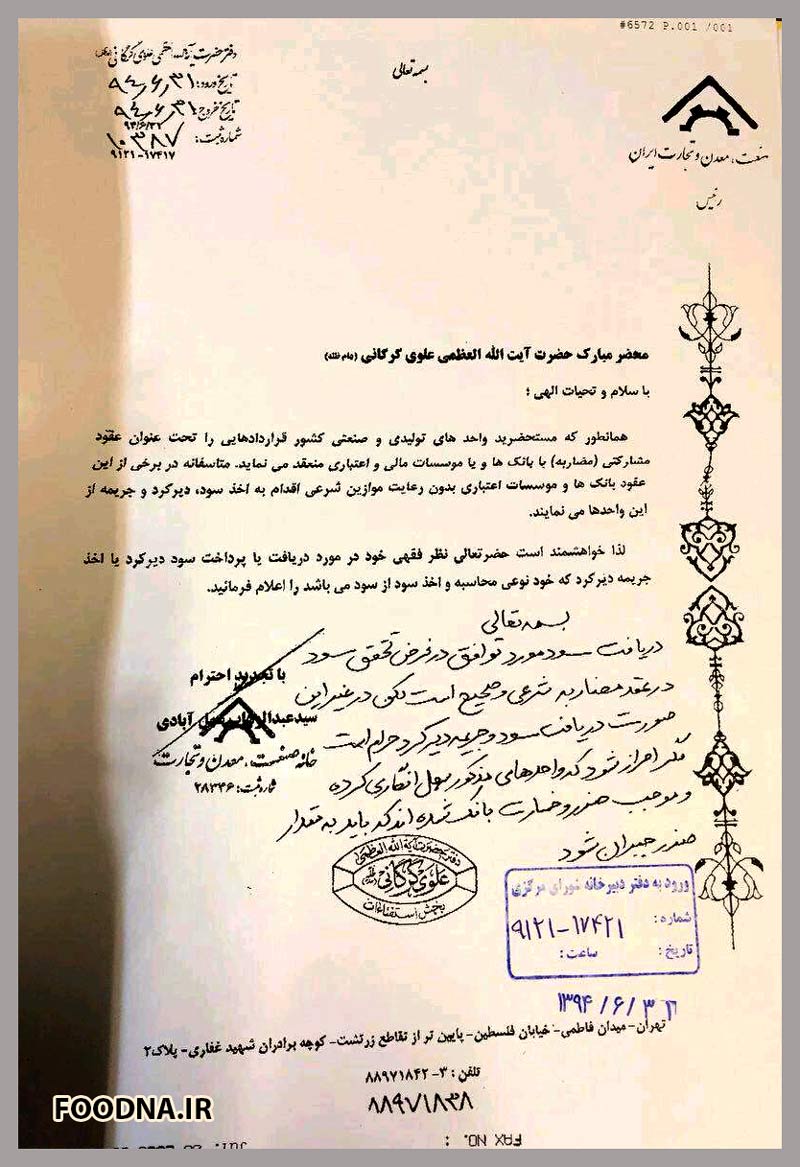 #6572 P.001 /001
بسمه تعالی
دفتر حضرت آیت الله العظمی علوی گرگانی
تاریخ ورود: ۹۴/۶/۳۱
تاریخ خروج: ۹۴/۶/۳۱
۹۴/۶/۳۱
شماره ثبت: ۱۰۳۸۷
۹۱۲۱-۱۷۴۱۷
صنعت، معدن و تجارت ایران
رئیس
محضر مبارک حضرت آیت الله العظمی علوی گرگانی (دام ظله)
با سلام و تحیات الهی ؛
همانطور که مستحضرید واحد های تولیدی و صنعتی کشور قراردادهایی را تحت عنوان عقود
مشارکتی (مضاربه) با بانک ها و یا موسسات مالی و اعتباری منعقد می نماید. متاسفانه در برخی از این
عقود بانک ها و موسسات اعتباری بدون رعایت موازین شرعی اقدام به اخذ سود، دیرکرد و جریمه از
این واحدها می نمایند.
لذا خواهشمند است حضرتعالی نظر فقهی خود در مورد دریافت یا پرداخت سود دیرکرد یا اخذ
جریمه دیرکرد که خود نوعی محاسبه و اخذ سود از سود می باشد را اعلام فرمائید.
بسمه تعالی
دریافت سود مورد توافق در فرض تحقق سود
در عقد مضاربه شرعی و صحیح است لکن در غیر این
صورت دریافت سود و جریمه دیرکرد حرام است
مگر احراز شود که واحدهای مذکور سهل انگاری کرده
و موجب ضرر و خسارت بانک شده اند که باید به مقدار
ضرر جبران شود
با تجدید احترام
سیدعبدالوهاب سهل آبادی
خانه صنعت، معدن و تجارت
شماره ثبت: ۲۸۳۴۶
دفتر حضرت آیة الله العظمی
علوی گرگانی
بخش استفتاءات
ورود به دفتر دبیرخانه شورای مرکزی
شماره: ۹۱۲۱-۱۷۴۲۱
تاریخ:
ساعت:
۱۳۹۴/۶/۳۱
تهران- میدان فاطمی- خیابان فلسطین- پایین تر از تقاطع زرتشت- کوچه برادران شهید غفاری- پلاک۲
تلفن: ۳-۸۸۹۷۱۸۴۲
۸۸۹۷۱۸۳۸
FOODNA.IR
FAX NO. :